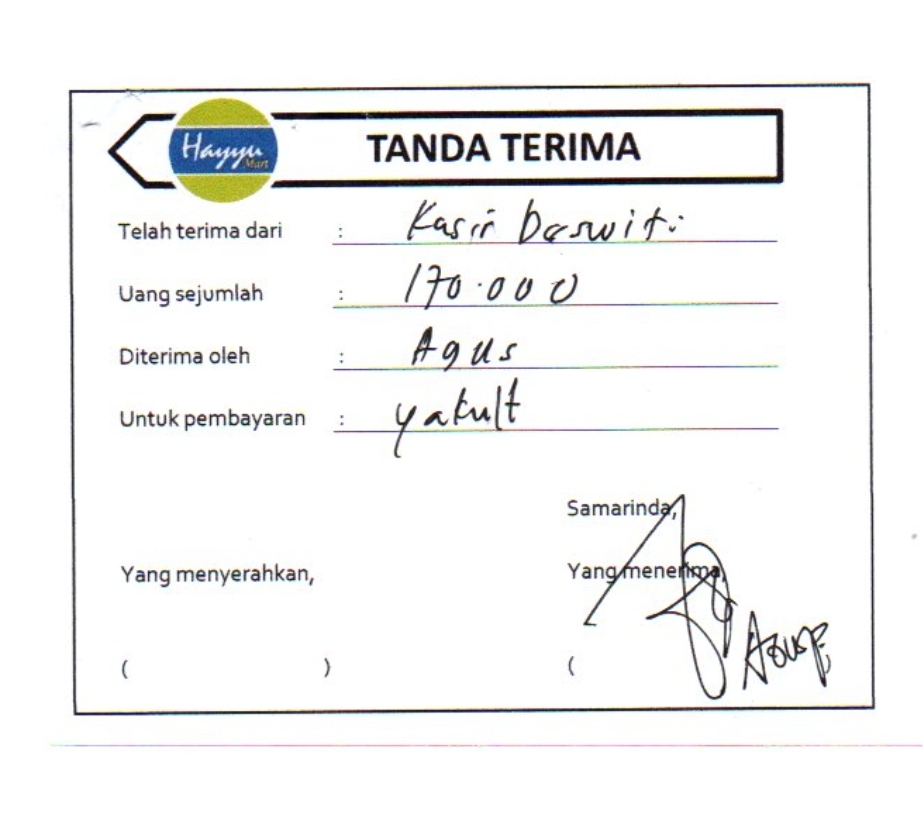 Hayyu Mart
TANDA TERIMA
Telah terima dari : Kasir
Uang sejumlah : 170.000
Diterima oleh : Agus
Untuk pembayaran : yakult
Samarinda,
Yang menyerahkan, Yang menerima,
( ) (